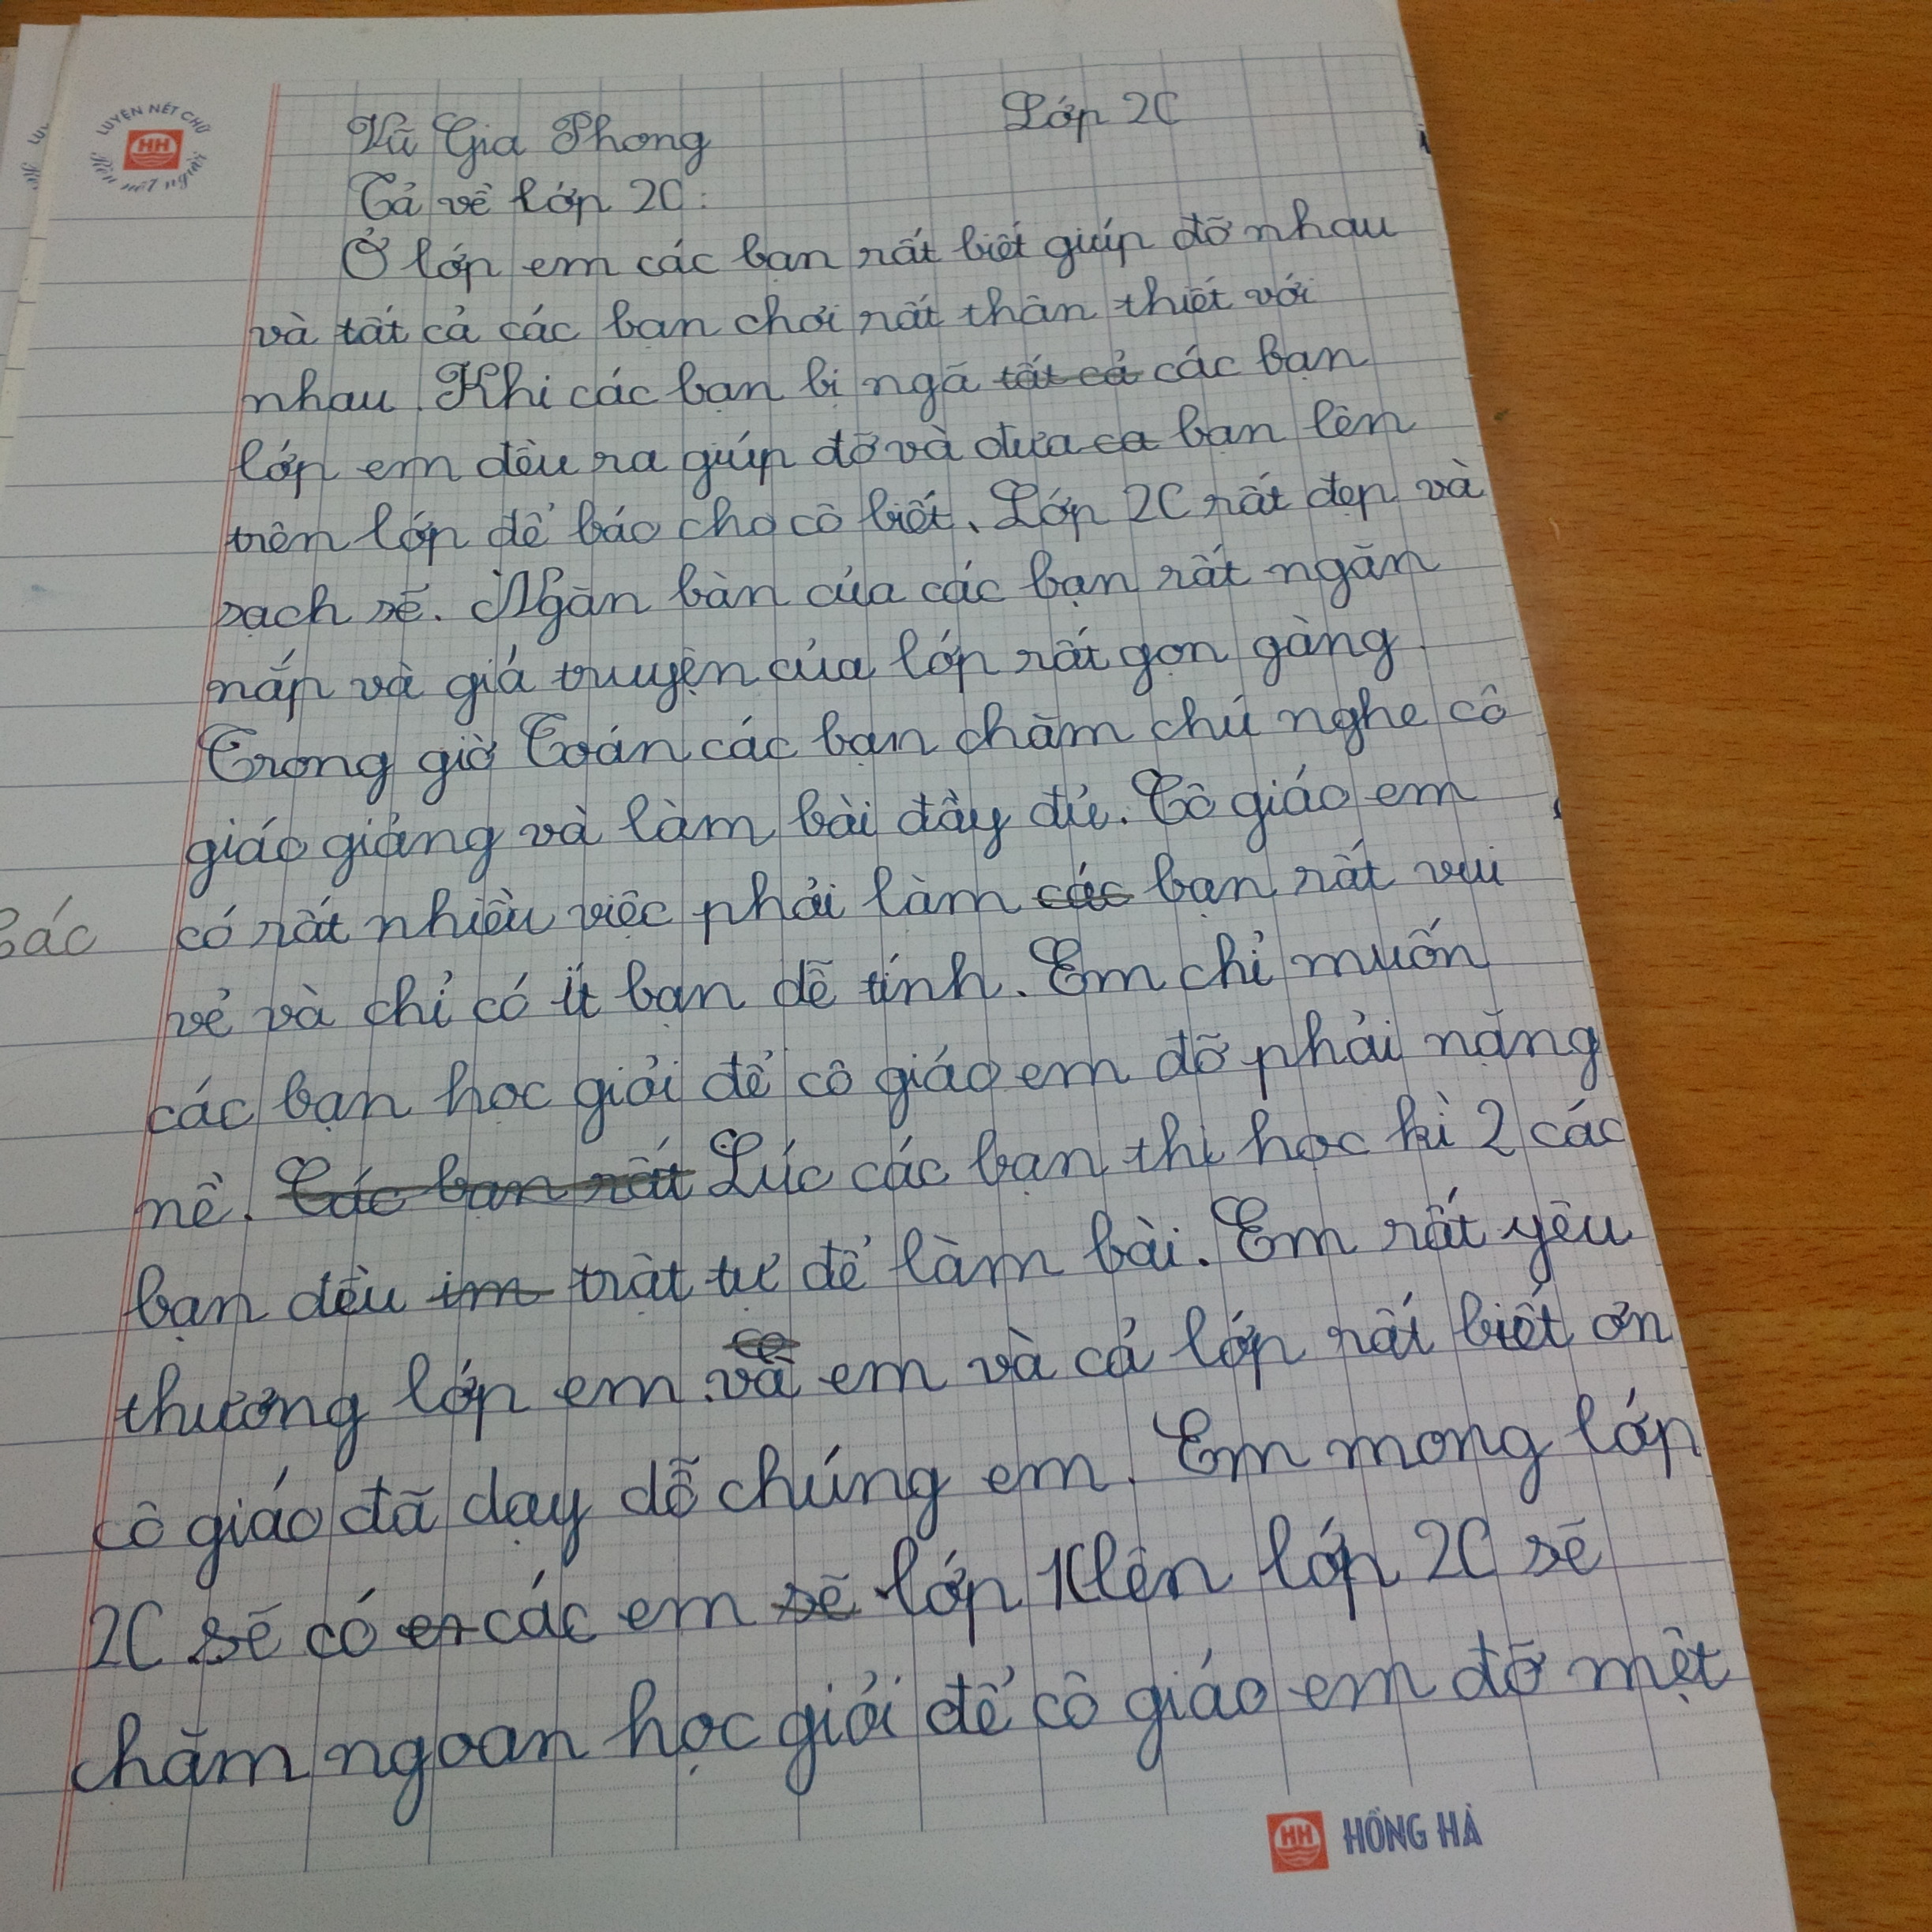 LUYỆN NÉT CHỮ
HH
Rèn nết người
Vũ Gia Phong Lớp 2C
Tả về lớp 2C:
Ở lớp em các bạn rất biết giúp đỡ nhau
và tất cả các bạn chơi rất thân thiết với
nhau. Khi các bạn bị ngã tất cả các bạn
lớp em đều ra giúp đỡ và đưa ca bạn lên
trên lớp để báo cho cô biết. Lớp 2C rất đẹp và
sạch sẽ. Ngăn bàn của các bạn rất ngăn
nắp và giá truyện của lớp rất gọn gàng.
Trong giờ Toán các bạn chăm chú nghe cô
giáo giảng và làm bài đầy đủ. Cô giáo em
có rất nhiều việc phải làm các bạn rất vui
vẻ và chỉ có ít bạn dễ tính. Em chỉ muốn
các bạn học giỏi để cô giáo em đỡ phải nặng
nề. Các bạn rất Lúc các bạn thi học kì 2 các
bạn đều im trật tự để làm bài. Em rất yêu
thương lớp em và em và cả lớp rất biết ơn
cô giáo đã dạy dỗ chúng em. Em mong lớp
2C sẽ có er các em sẽ lớp 1C lên lớp 2C sẽ
chăm ngoan học giỏi để cô giáo em đỡ mệt
Bác
HH HỒNG HÀ